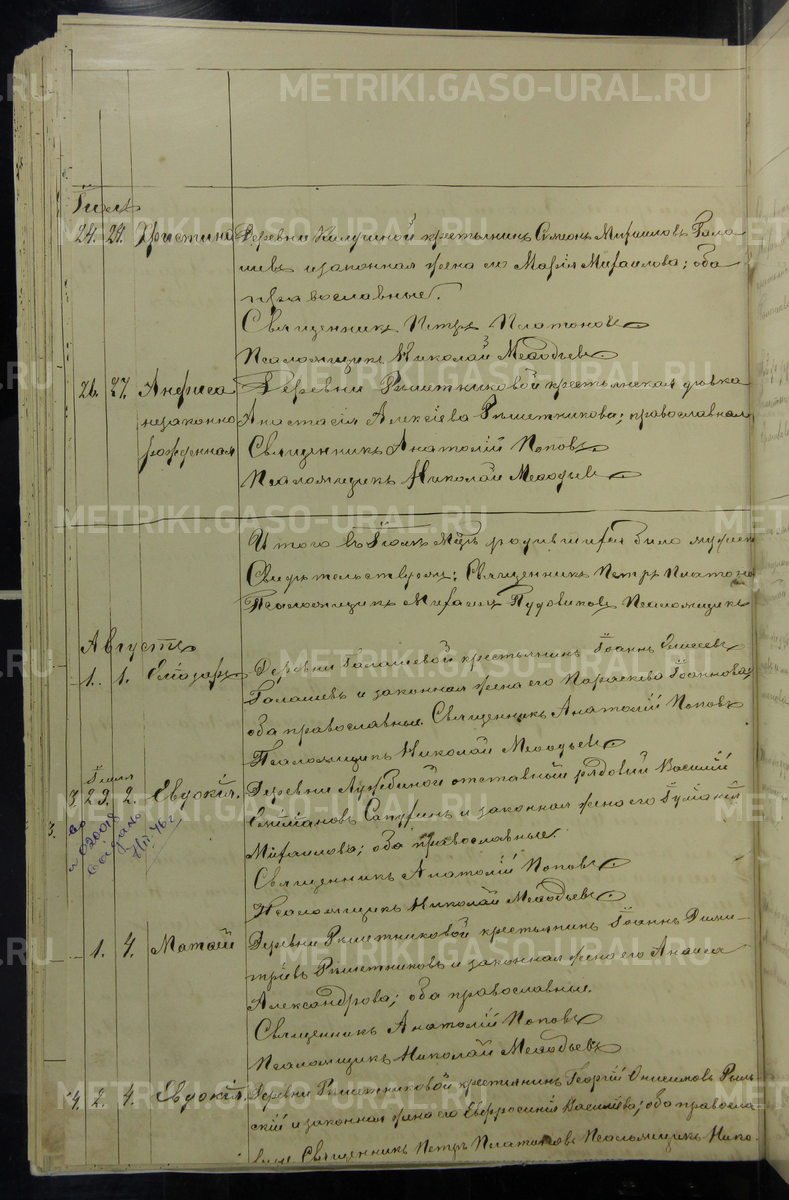 METRIKI.GASO-URAL.RU
Іюль
24. 24. Христина Деревни крестьянинъ Симеонъ Михаиловъ Гала
шевъ и законная жена его Марія Михаилова; оба
православные.
Священникъ Петръ Платоновъ
Псаломщикъ Николай Меѳодьевъ
26. 27. Анфиса Деревни Рѣшетниковой крестьянская дѣвка
незаконно Анастасія Алексіева Рѣшетникова; православная
рожденная Священникъ Анатолій Поповъ
Псаломщикъ Николай Меѳодьевъ
Итого въ Іюлѣ м-цѣ родившихся было мужеск
Свидѣтельствуемъ: Священникъ Петръ Платонов
Псаломщикъ Михаилъ Пудовиковъ Псаломщикъ
Августъ
1. 1. Еліодоръ Деревни Галашевой крестьянинъ Іоаннъ Елисеевъ
Галашевъ и законная жена его Параскева Іоаннова;
оба православные. Священникъ Анатолій Поповъ
Псаломщикъ Николай Меѳодьевъ
Іюля
3. 29. 2. Евдокія. Деревни Лужбиной отставный рядовій Василій
Сапугинъ и законная жена его
Михаилова; оба православные.
Священникъ Анатолій Поповъ
Псаломщикъ Николай Меѳодьевъ
1. 4. Матѳій Деревни Рѣшетниковой крестьянинъ Іоаннъ Дими-
тріевъ Рѣшетниковъ и законная жена его Анисія
Александрова; оба православные.
Священникъ Анатолій Поповъ
Псаломщикъ Николай Меѳодьевъ
4. 2. 4. Евдокія. Деревни Рѣшетниковой крестьянинъ Георгій Онисимовъ
и законная жена его Евфросинія Василіева; оба правосла
вные Священникъ Петръ Платоновъ Псаломщикъ Нико-